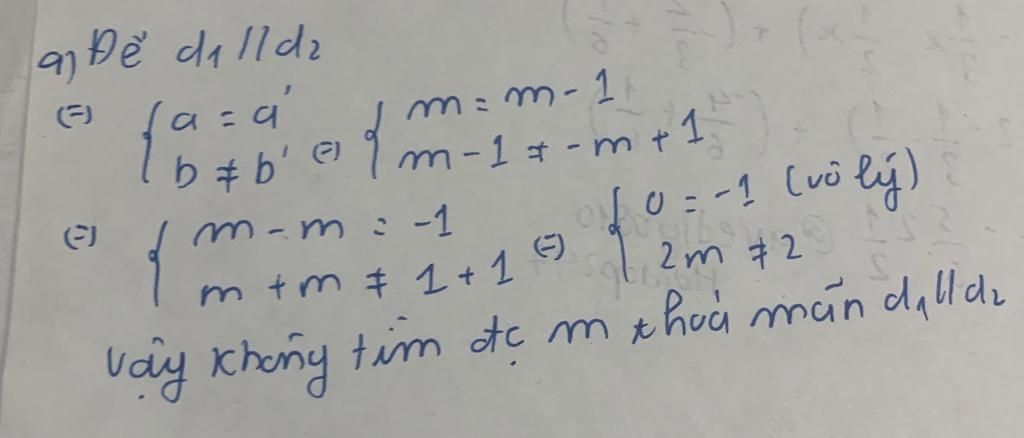 a) Để d₁ // d₂
(=) { a = a' (=) { m = m - 1
b ≠ b' m - 1 ≠ -m + 1
(=) { m - m = -1 (=) { 0 = -1 (vô lý)
m + m ≠ 1 + 1 2m ≠ 2
Vậy không tìm đc m thoả mãn d₁ // d₂